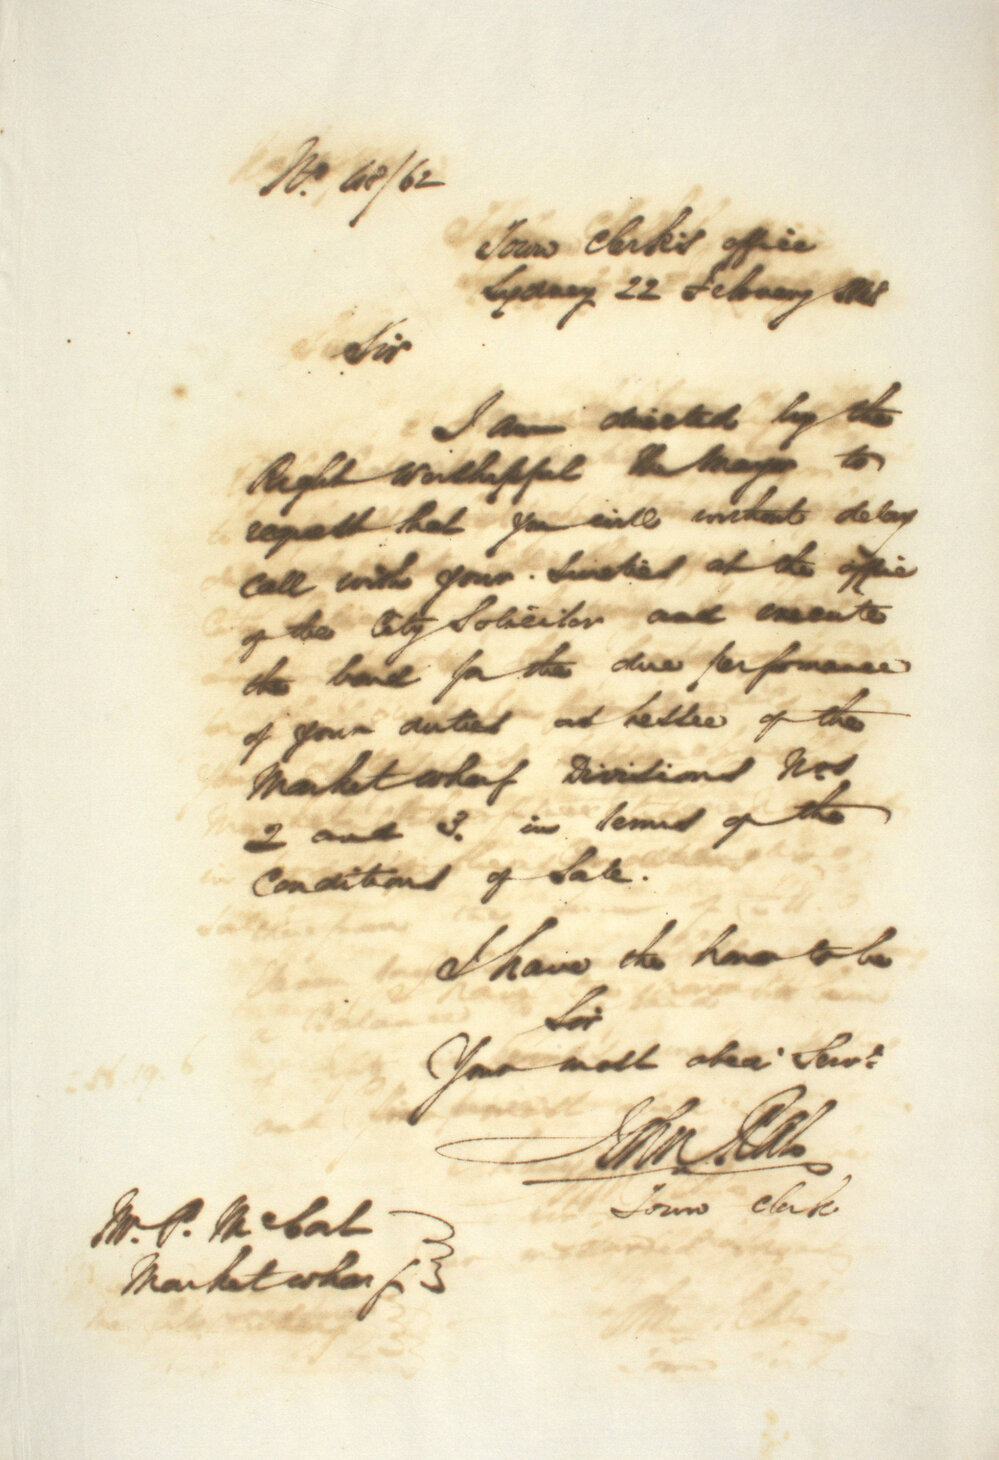 No. 48/62
Town Clerk's office
Sydney 22 February
Sir
I am directed by the
Right Worshipful the Mayor to
request that you will without delay
call with your Sureties at the office
of the City Solicitor and execute
the bond for the due performance
of your duties as Lessee of the
Market wharf Divisions Nos
2 and 3. in terms of the
Conditions of Sale.
I have the honor to be
Sir
Your most obedt. Servt.
John
Town Clerk
Mr. P. Mc
Market wharf